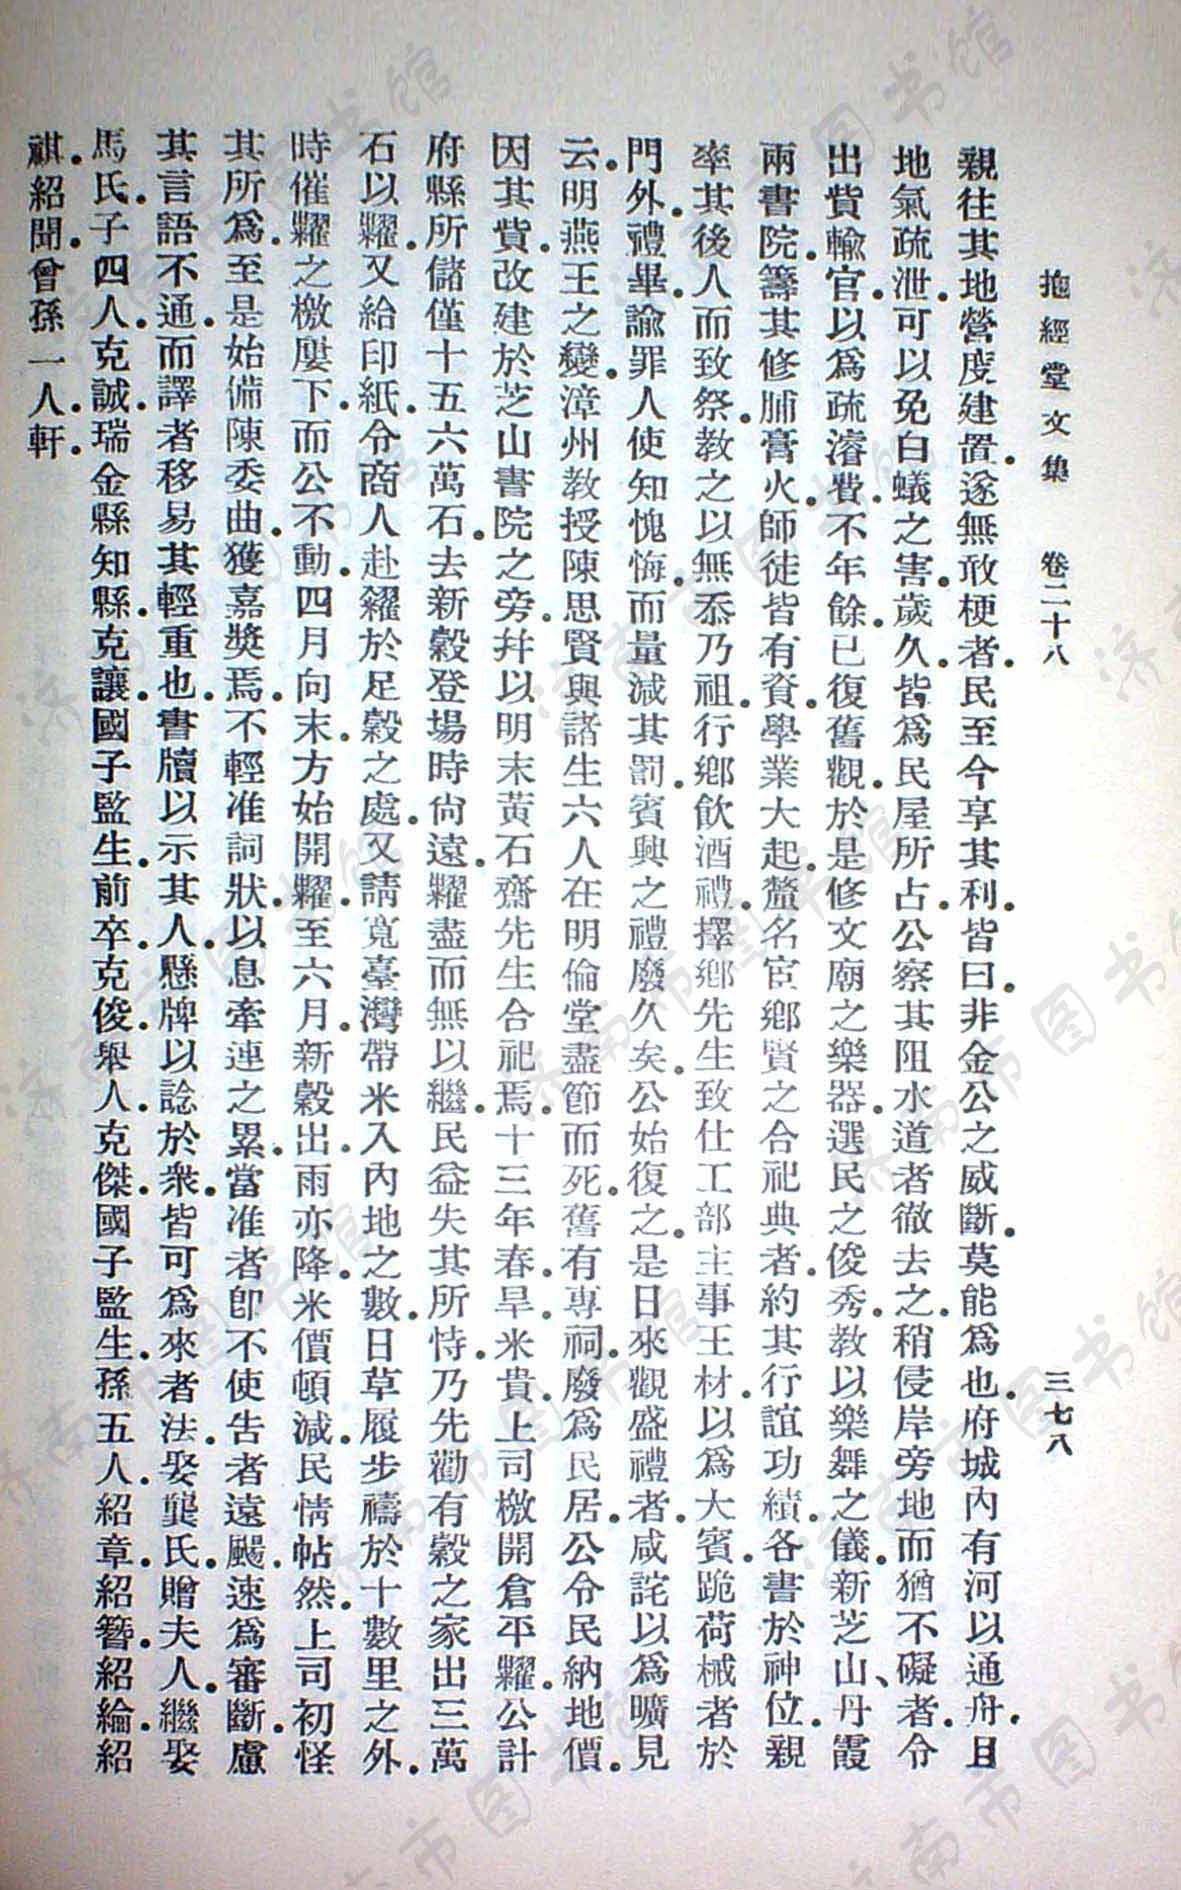 抱經堂文集　卷二十八　三七八
親往其地營度建置。遂無敢梗者。民至今享其利。皆曰。非金公之威斷。莫能爲也。府城內有河以通舟。且
地氣疏泄。可以免白蟻之害。歲久。皆爲民屋所占。公察其阻水道者徹去之。稍侵岸旁地而猶不礙者。令
出貲輸官。以爲疏濬費。不年餘。已復舊觀。於是修文廟之樂器。選民之俊秀。教以樂舞之儀。新芝山、丹霞
兩書院。籌其修脯膏火。師徒皆有資。學業大起。釐名宦鄉賢之合祀典者。約其行誼功績。各書於神位。親
率其後人而致祭。教之以無忝乃祖。行鄉飲酒禮。擇鄉先生致仕工部主事王材。以爲大賓。跪荷械者於
門外。禮畢。諭罪人使知愧悔。而量減其罰。賓興之禮廢久矣。公始復之。是日來觀盛禮者。咸詫以爲曠見
云。明燕王之變。漳州教授陳思賢與諸生六人在明倫堂盡節而死。舊有專祠。廢爲民居。公令民納地價。
因其貲。改建於芝山書院之旁。幷以明末黃石齋先生合祀焉。十三年春。旱。米貴。上司檄開倉平糶。公計
府縣所儲僅十五六萬石。去新穀登場時尙遠。糶盡而無以繼。民益失其所恃。乃先勸有穀之家出三萬
石以糶。又給印紙。令商人赴糴於足穀之處。又請寬臺灣帶米入內地之數。日草履步禱於十數里之外。
時催糶之檄屢下。而公不動。四月向末。方始開糶。至六月。新穀出。雨亦降。米價頓減。民情帖然。上司初怪
其所爲。至是始備陳委曲。獲嘉獎焉。不輕准詞狀。以息牽連之累。當准者卽不使告者遠颺。速爲審斷。慮
其言語不通。而譯者移易其輕重也。書牘以示其人。懸牌以諗於衆。皆可爲來者法。娶龔氏。贈夫人。繼娶
馬氏。子四人。克誠。瑞金縣知縣。克讓。國子監生。前卒。克俊。舉人。克傑。國子監生。孫五人。紹章。紹簪。紹綸。紹
祺。紹聞。曾孫一人。軒。